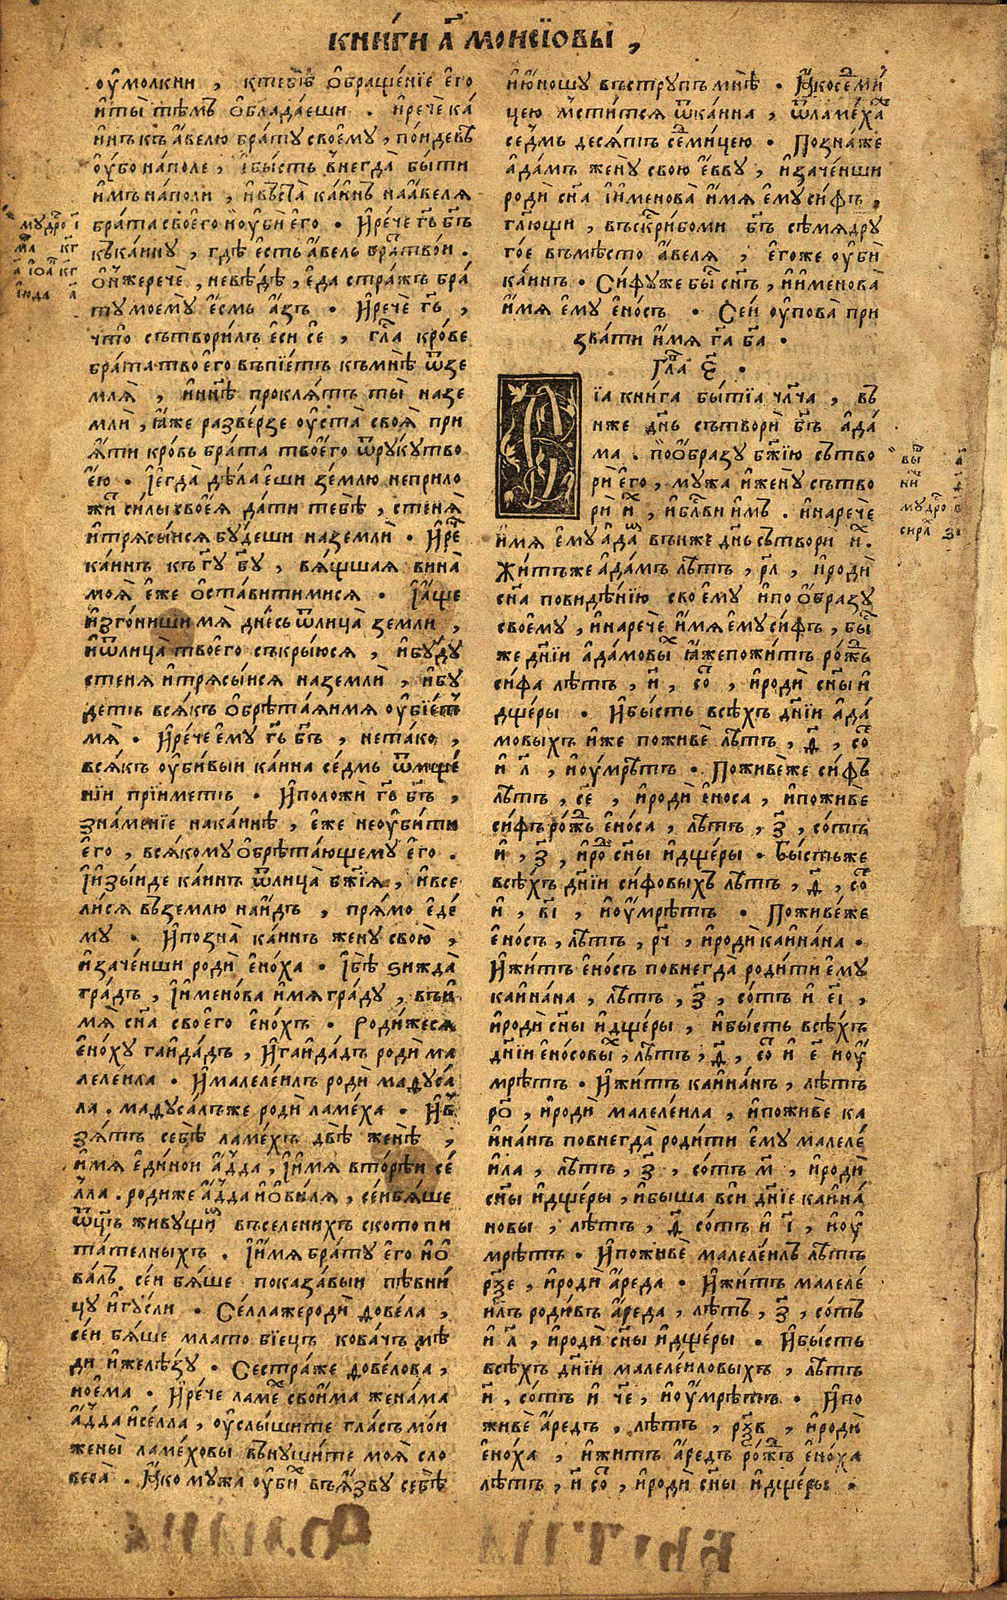 книги а҃ моисїовы ,
оумолкни , ктебѣ обращенїе его
иты тѣмъ обладаеши . ирече ка
инъ къавелю брату своему , поидевѣ
оубо наполе , ибысть внегда быти
имъ наполи , ивъста каинъ наавеля
брата своего иоуби его • Ирече гь҃ бг҃ъ
къкаину , где есть авель братъ твои .
онжерече , невѣдѣ , еда стражъ бра
тумоему есмь азъ • Ирече гь҃ ,
что сътворилъ еси се , гла крове
брата твоего въпїетъ къмнѣ ѿзе
мля , инн҃ѣ проклятъ ты назе
мли , яже разверзе оуста своя при
яти кровь брата твоего ѿрукутво
ею • Їегда дѣлаеши землю неприло
жи силы своея дати тебѣ , стеня
итрясыися будеши наземли • Ире
каинъ къ гу҃ бу҃ , вящшая вина
моя еже оставитимися • Їаще
изгониши мя днесь ѿлица земли ,
иѿлица твоего съкрыюся , ибуду
стеня итрясыися наземли , ибу
детъ всякъ обрѣтаяимя оубїетъ
мя • Ирече ему гь҃ бг҃ъ , нетако ,
всякъ оубивыи каина седмь ѿмще
нїи прїиметъ • Иположи гь҃ бг҃ъ ,
знаменїе накаинѣ , еже неоубити
его , всякому обрѣтающему его .
Їизыиде каинъ ѿлица бж҃їя , ивсе
лися вземлю наидъ , прямо еде
му • Ипозна каинъ жену свою ,
изаченши роди еноха • Їбѣ зижда
градъ , їименова имяграду , въи
мя сн҃а своего енохъ • Родижеся
еноху гаидадъ , Игаидадъ роди ма
лелеила • Ималелеилъ роди мадуса
ла . мадусалъже роди ламеха • Ив
зятъ себѣ ламехъ двѣ женѣ ,
имя единои адда , їимя вторѣи се
лла . родиже адда иовиля , сеибяше
ѿц҃ъ живущи въселенихъ скотопи
тателныхъ . Їимя брату его ио
валъ , сеи бяше показавыи пѣвни
цу игусли • Селлажероди довела ,
сеи бяше млатобїецъ ковачъ мѣ
ди ижелѣзу • Сестраже довелова ,
ноема • Ирече ламе своима женама
адда иселла , оуслышите гласъ мои
жены ламеховы внушите моя сло
веса . Яко мужа оуби въязву себѣ
июношу въструпъ мнѣ • Якоседми
цею мстится ѿкаина , ѿламеха
седмь десятъ седмицею • Познаже
адамъ жену свою евву , изаченши
роди сн҃а їименова имя ему сифъ ,
гл҃ющи , въскрибоми бг҃ъ сѣмядру
гое вмѣсто авеля , егоже оуби
каинъ • Сифуже бы сн҃ъ , иименова
имя ему еносъ • Сеи оупова при
звати имя га҃ ба҃ •
Гла е҃ •
їа книга бытїа чл҃ча , въ
иже дн҃ь сътвори бг҃ъ ада
ма . пообразу бж҃їю сътво
ри его , мужа ижену сътво
ри и , ибл҃ви имъ . инарече
имя ему адам въиже дн҃ь сътвори и .
Житъже адамъ лѣтъ , рл҃ , ироди
сн҃а повидѣнїю своему ипообразу
своему , инарече имя ему сифъ , бы
же днїи адамовы яжепожитъ рожъ
сифа лѣтъ , и҃ , со , ироди сн҃ы и
дщеры • Ибысть всѣхъ днїи ада
мовыхъ иже поживе лѣтъ , ѳ҃ , со
и л҃ , иоумрѣтъ • Поживеже сифъ
лѣтъ , се҃ , ироди еноса , ипоживе
сифърожъ еноса , лѣтъ , з҃ , сотъ
и , з҃ , иро сн҃ы идщеры • Бысть же
всѣхъ днїи сифовыхъ лѣтъ , ѳ҃ , со
и , вї , иоумрѣтъ • Поживеже
еносъ , лѣтъ , рч҃ , ироди каинана •
Ижитъ еносъ повнегда родити ему
каинана , лѣтъ , з҃ , сотъ и еї ,
ироди сн҃ы идщеры , ибысть всѣхъ
днїи еносовы , лѣтъ , ѳ҃ , со и е҃ иоу
мрѣтъ • Ижитъ каинанъ , лѣтъ
ро҃ , ироди малелеила , ипоживе ка
инанъ повнегда родити ему малеле
ила , лѣтъ , з҃ , сотъ м҃ , ироди
сн҃ы идщеры , ибыша вси днїе каина
новы , лѣтъ , ѳ҃ сотъ и ї҃ , иоу
мрѣтъ • Ипоживе малелеилъ лѣтъ
рѯе , ироди ареда • Ижитъ малеле
илъ родивъ ареда , лѣтъ , з҃ , сотъ
и л҃ , ироди сн҃ы идщеры • Ибысть
всѣхъ днїи малелеиловыхъ , лѣтъ
и҃ , сотъ и че҃ , иоумрѣтъ • Ипо
живе аредъ , лѣтъ , рѯв , ироди
еноха , ижитъ аредъ рожъ еноха
лѣтъ , и҃ со , ироди сн҃ы идщеры •